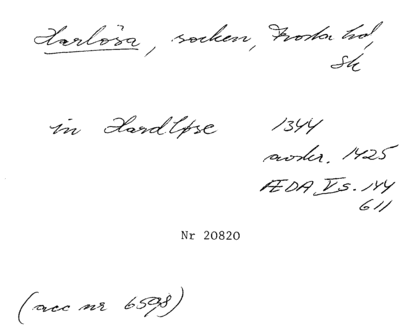 Harlösa, socken, Frosta hd,
Sk
in Hardløse 1344
avskr. 1425
ÆDA V s. 144
611
Nr 20820
(acc nr 6598)